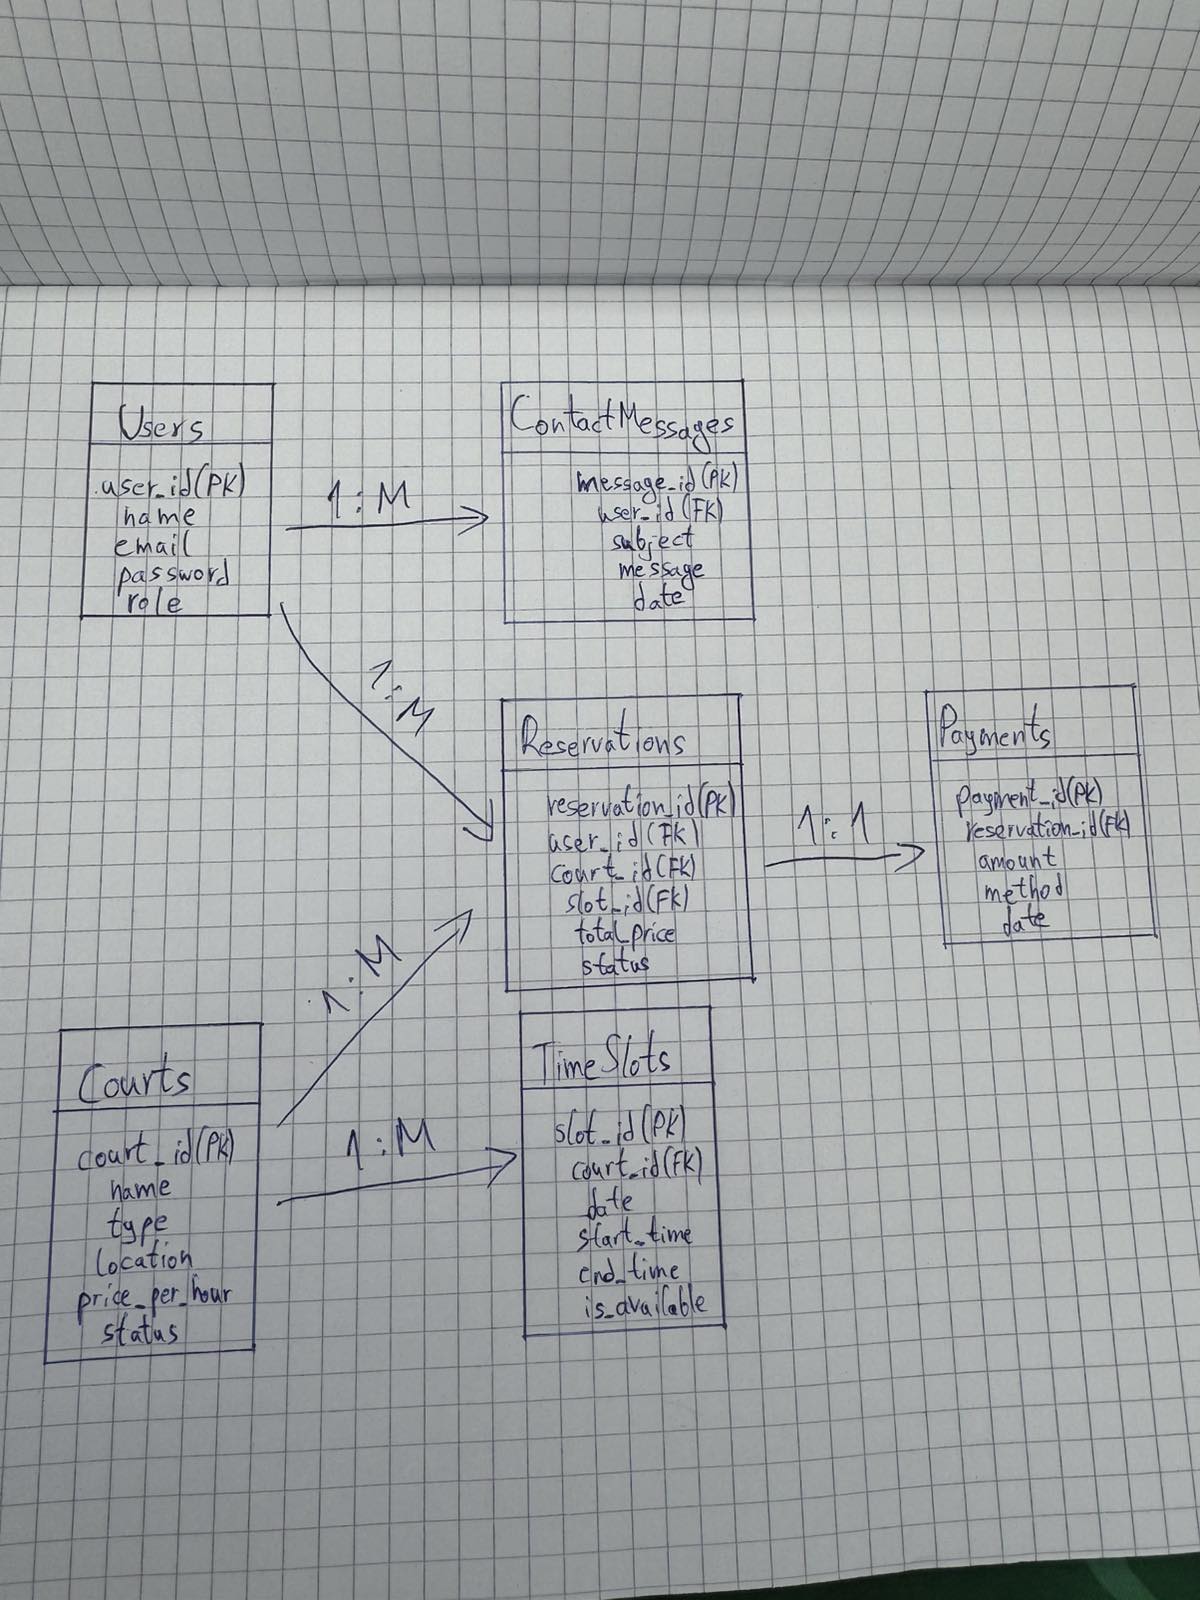 Users
user_id(PK)
name
email
password
role
1:M
ContactMessages
message_id(PK)
user_id(FK)
subject
message
date
1:M
Reservations
reservation_id(PK)
user_id(FK)
court_id(FK)
slot_id(FK)
total_price
status
1:1
Payments
payment_id(PK)
reservation_id(FK)
amount
method
date
1:M
Courts
court_id(PK)
name
type
location
price_per_hour
status
1:M
TimeSlots
slot_id(PK)
court_id(FK)
date
start_time
end_time
is_available